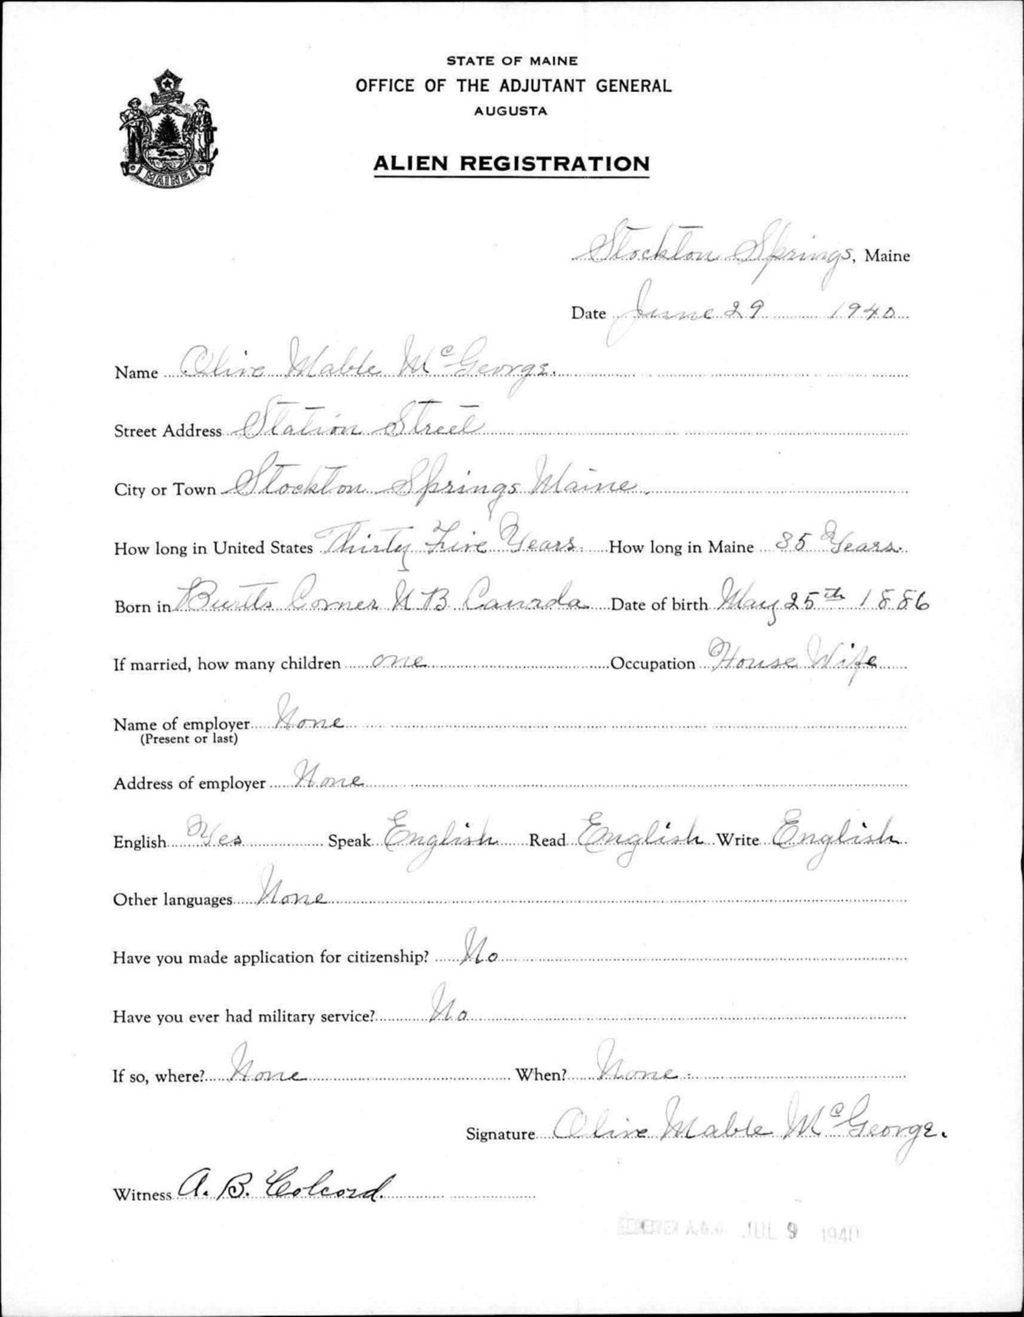 STATE OF MAINE
OFFICE OF THE ADJUTANT GENERAL
AUGUSTA
ALIEN REGISTRATION
MAINE
Stockton Springs, Maine
Date June 29 1940
Name Olive Mable McGeorge.
Street Address Station Street
City or Town Stockton Springs Maine.
How long in United States Thirty Five Years How long in Maine 35 Years.
Born in Burtts Corner N B Canada Date of birth May 25th 1886
If married, how many children one Occupation House Wife
Name of employer None
(Present or last)
Address of employer None
English Yes Speak English Read English Write English
Other languages None
Have you made application for citizenship? No
Have you ever had military service? No
If so, where? None When? None.
Signature Olive Mable McGeorge.
Witness A. B. Colcord.
RECEIVED A.G.O. JUL 9 1940